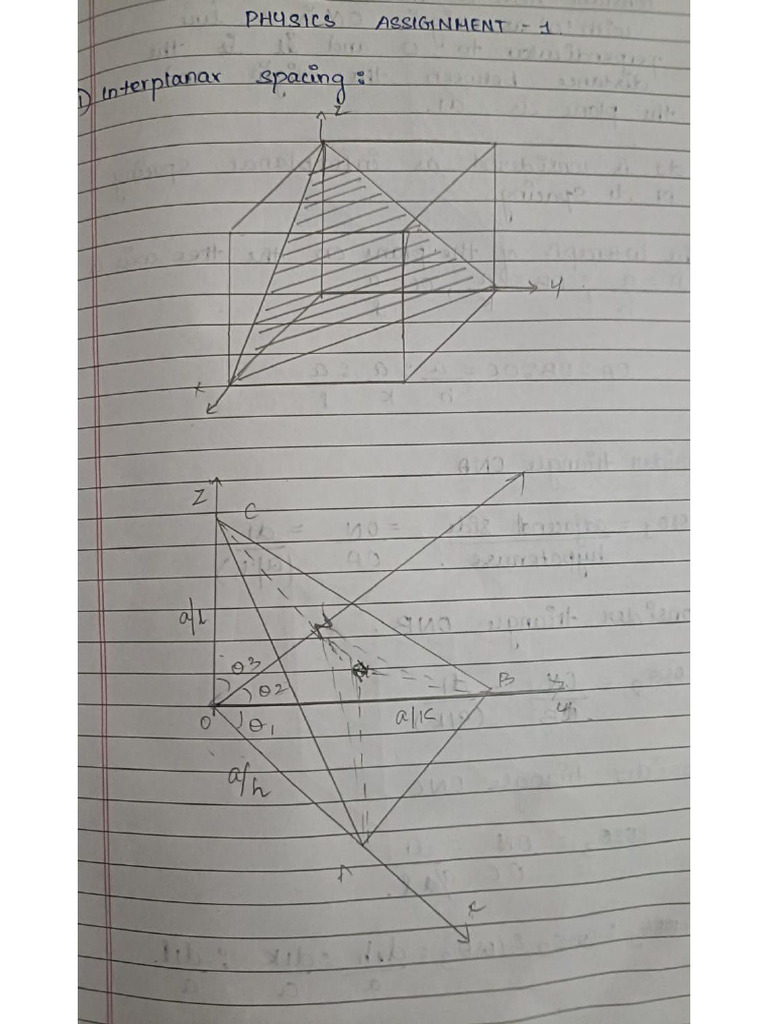 PHYSICS ASSIGNMENT - 1.
1) Interplanar spacing :
Z
Y
X
Z
C
a/l
θ3
θ2
B
O
θ1
a/K
Y
a/h
A
X